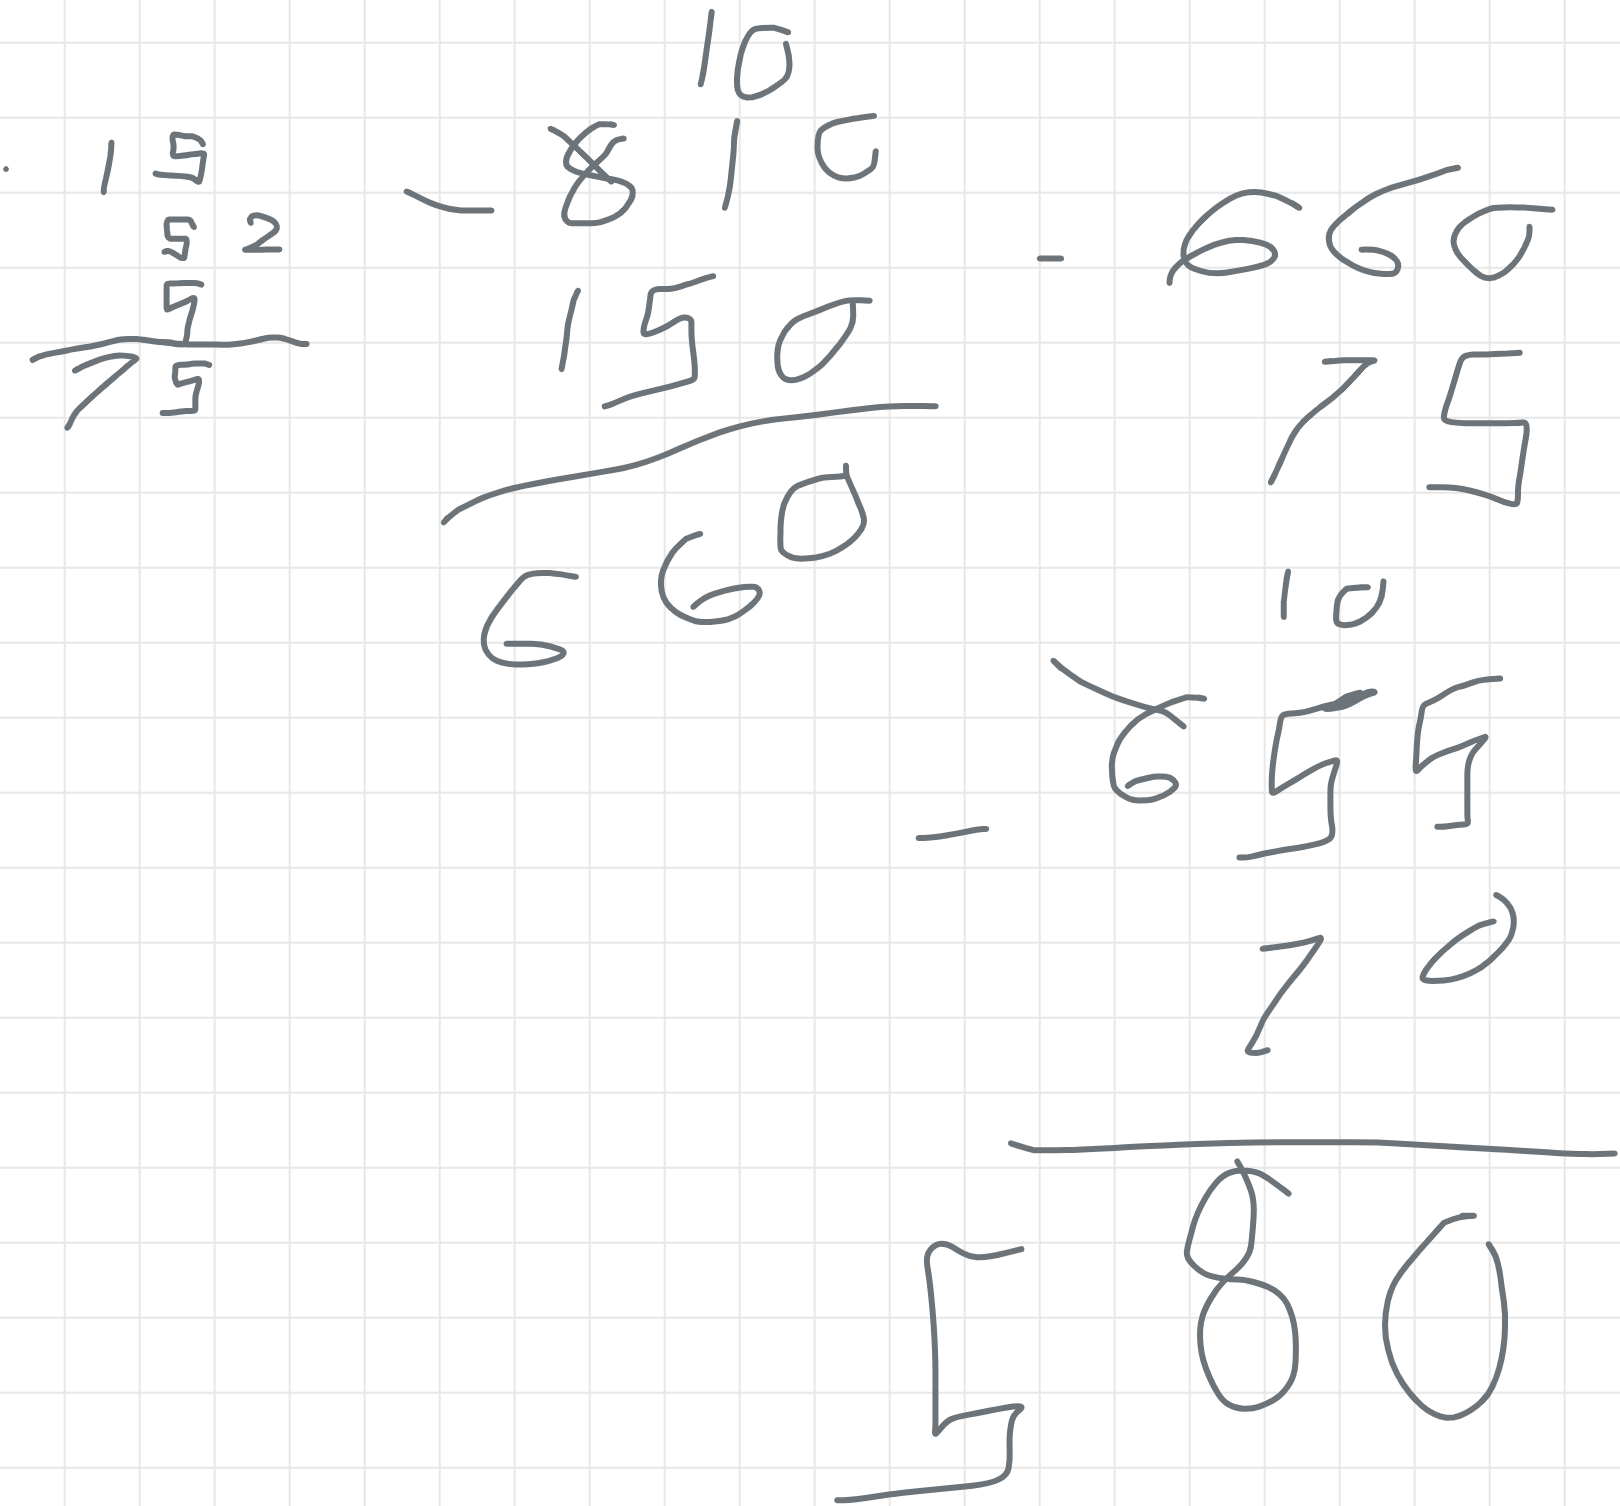 15
5 2
5
75
10
- 8 1 0
150
660
- 660
75
10
- 6 5 5
7 0
5 8 0